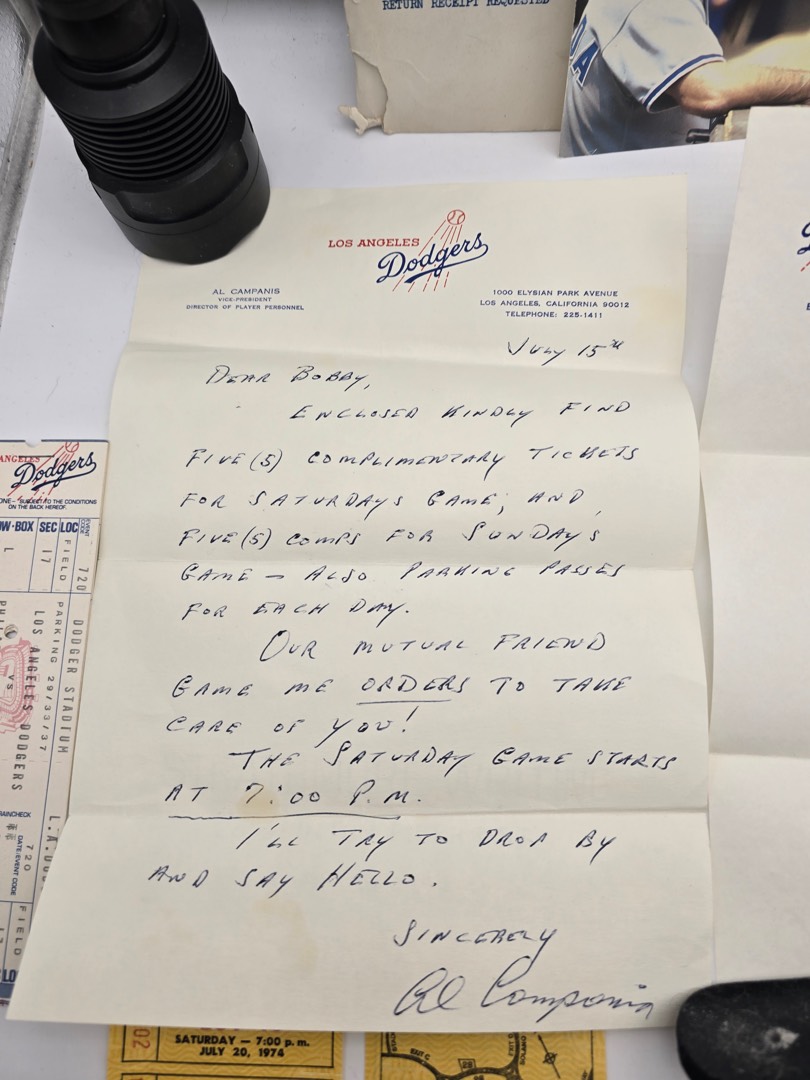 RETURN RECEIPT REQUESTED
LOS ANGELES
Dodgers
AL CAMPANIS
VICE-PRESIDENT
DIRECTOR OF PLAYER PERSONNEL
1000 ELYSIAN PARK AVENUE
LOS ANGELES, CALIFORNIA 90012
TELEPHONE: 225-1411
JULY 15TH
DEAR BOBBY,
ENCLOSED KINDLY FIND
FIVE (5) COMPLIMENTARY TICKETS
FOR SATURDAYS GAME; AND
FIVE (5) COMPS FOR SUNDAYS
GAME - ALSO PARKING PASSES
FOR EACH DAY.
OUR MUTUAL FRIEND
GAME ME ORDERS TO TAKE
CARE OF YOU!
THE SATURDAY GAME STARTS
AT 7:00 P.M.
I'LL TRY TO DROP BY
AND SAY HELLO.
SINCERELY
Al Campanis
ANGELES
Dodgers
SUBJECT TO THE CONDITIONS
ON THE BACK HEREOF.
BOX SEC LOC
EVENT CODE
L 17 FIELD 720
DODGER STADIUM
PARKING 29/33/37
LOS ANGELES DODGERS
VS
RAINCHECK
DATE/EVENT CODE
720
FIELD
02
SATURDAY — 7:00 p.m.
JULY 20, 1974
EXIT C
28
SOLANO